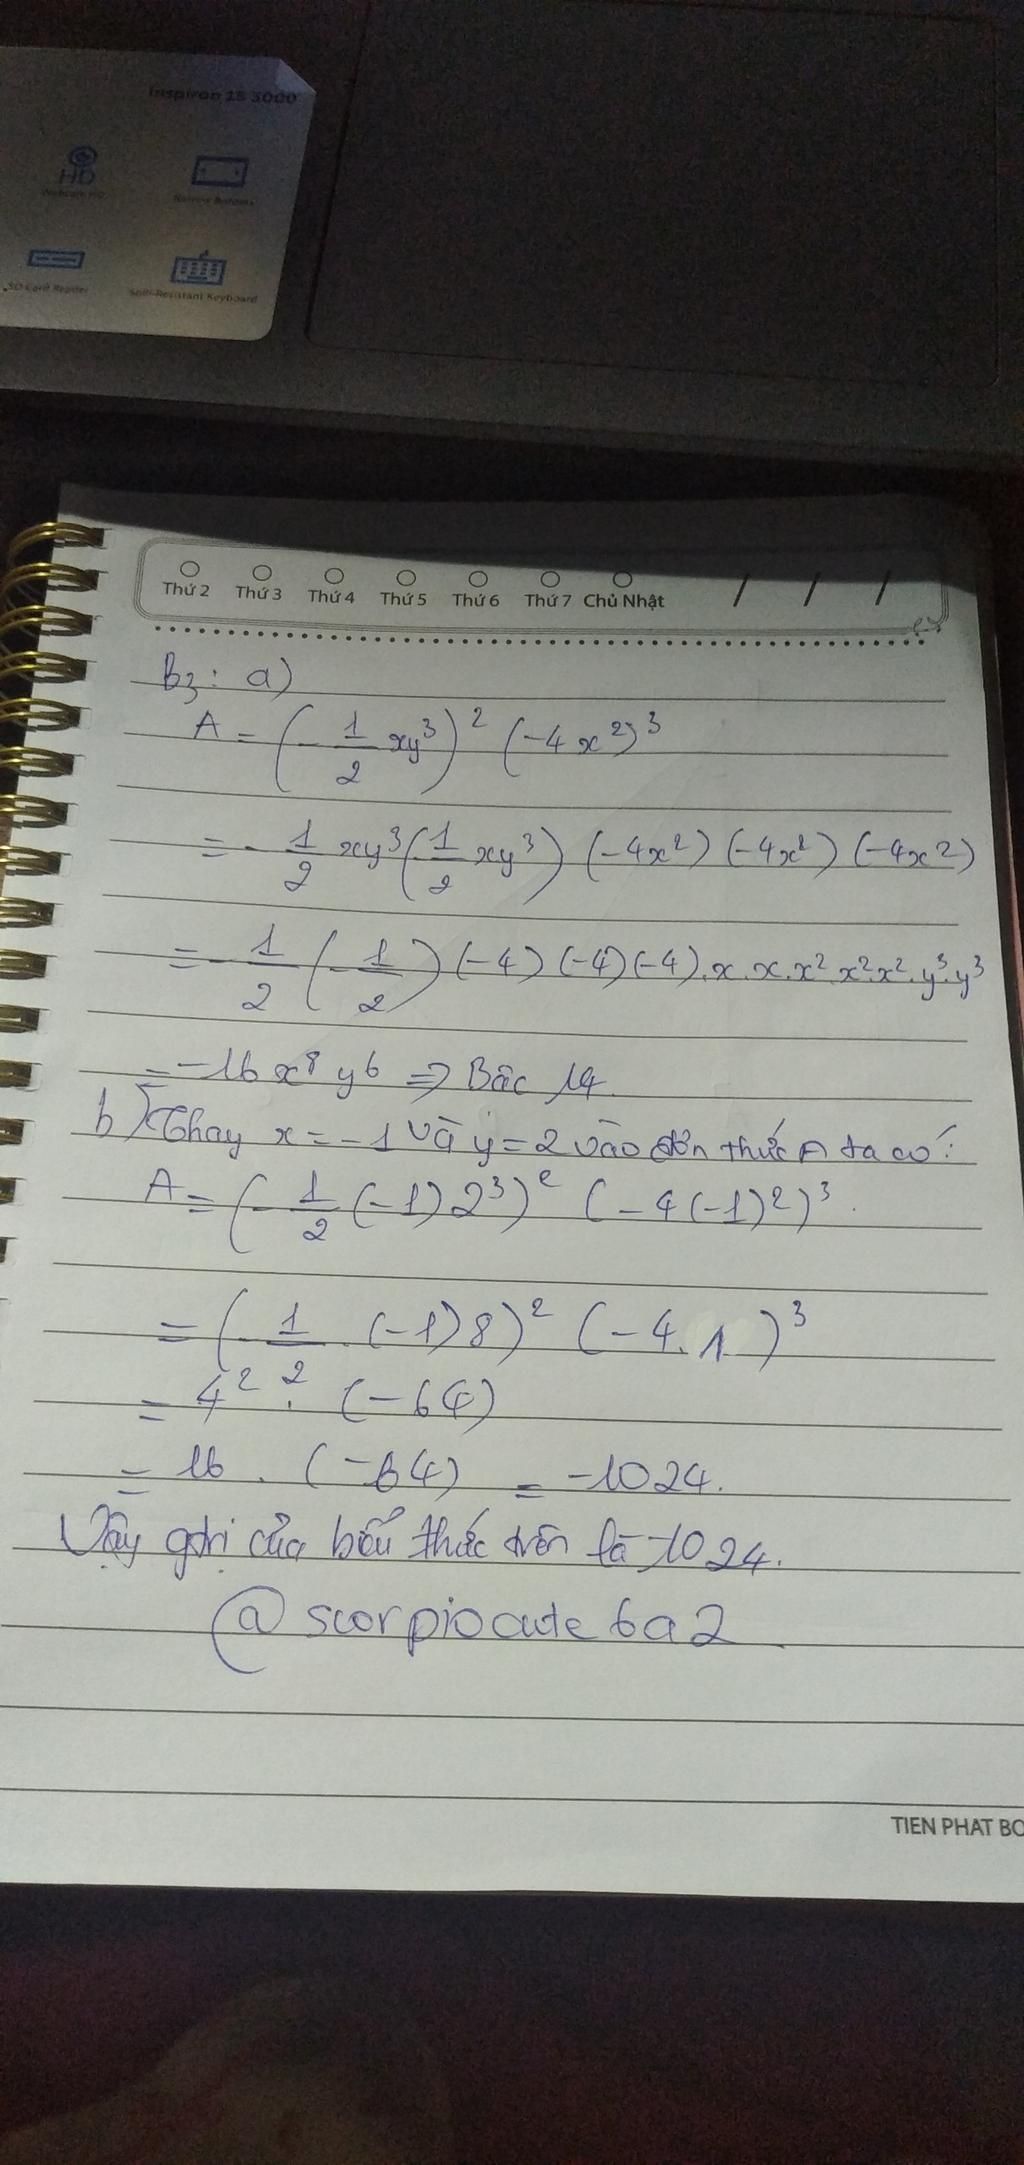 Inspiron 15 3000
HD
Webcam HD
Narrow Borders
SD Card Reader
Spill-Resistant Keyboard
Thứ 2 Thứ 3 Thứ 4 Thứ 5 Thứ 6 Thứ 7 Chủ Nhật / / /
B3: a)
A = (-1/2 xy³)² (-4x²)³
= -1/2 xy³ (1/2 xy³) (-4x²) (-4x²) (-4x2)
= -1/2 (-1/2) (-4) (-4) (-4).x.x.x².x².x².y³.y³
= -16x⁸y⁶ => Bậc 14
b) Thay x = -1 và y = 2 vào đơn thức A ta có:
A = (-1/2 (-1) 2³)² (-4(-1)²)³.
= (-1/2 . (-1) 8)² (-4.1)³
= 4² . (-64)
= 16 . (-64) = -1024.
Vậy gtri của biểu thức trên là -1024.
@scorpiocute6a2
TIEN PHAT BO